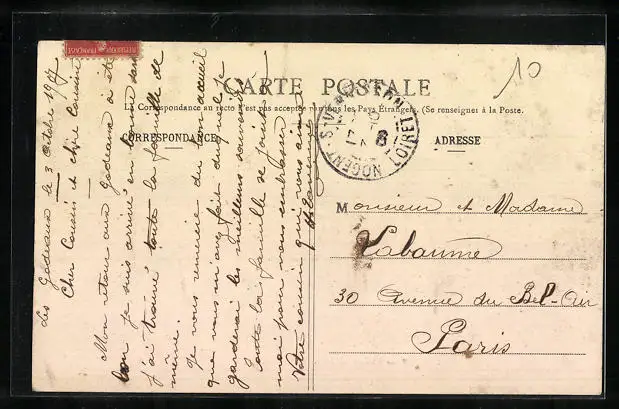 CARTE POSTALE
La Correspondance au recto n'est pas acceptée par tous les Pays Étrangers. (Se renseigner à la Poste.
CORRESPONDANCE
ADRESSE
10
RÉPUBLIQUE FRANÇAISE
NOGENT-S-VERNISSON
LOIRET
Les Gadeaux le 3 Octobre 1907
Cher Cousin et chère Cousine
Mon retour aux Gadeaux a été
bon je suis arrivé en bonne santé
j'ai trouvé toute la famille de
même.
Je vous remercie du bon accueil
que vous m'avez fait duquel je
garderai les meilleurs souvenirs.
Toute la famille se joint à
moi pour vous embrasser
Votre cousin qui vous aime
Monsieur et Madame
Labaume
30 Avenue du Bel-Air
Paris